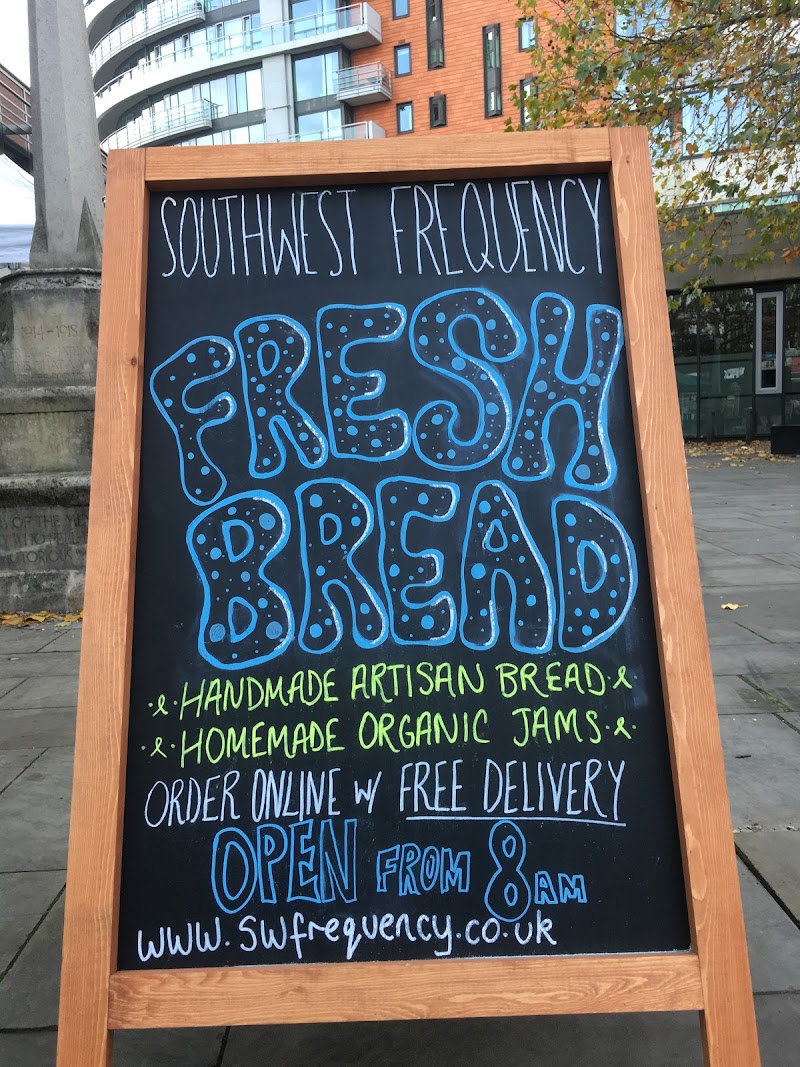 SOUTHWEST FREQUENCY
FRESH
BREAD
HANDMADE ARTISAN BREAD
HOMEMADE ORGANIC JAMS
ORDER ONLINE W/ FREE DELIVERY
OPEN FROM 8AM
www.swfrequency.co.uk
1914-1918